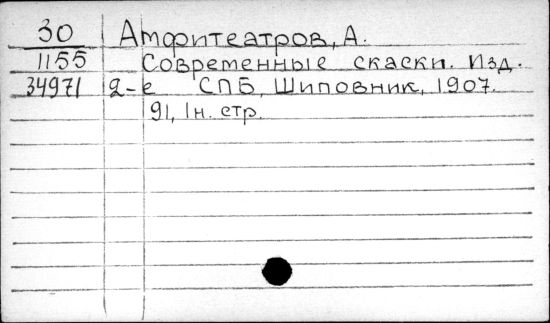 30 Амфитеатров, А.
1155 Современные скаски. Изд.
34971 2-е СПБ, Шиповник, 1907.
91, 1н. стр.